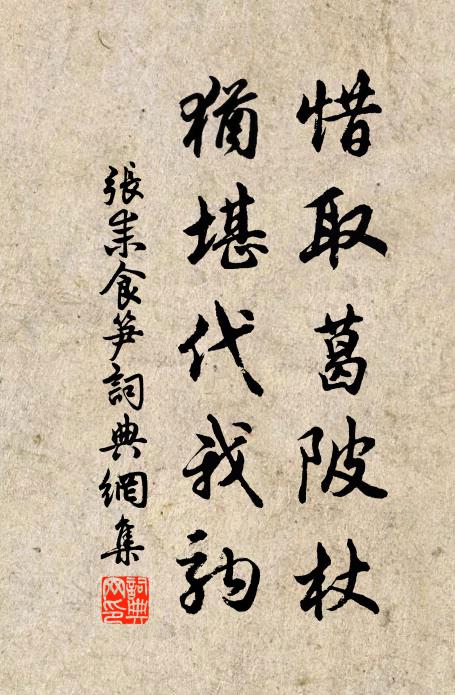 惜取葛陂杖
猶堪代我駒
張耒食笋詞典網集
詞典网印